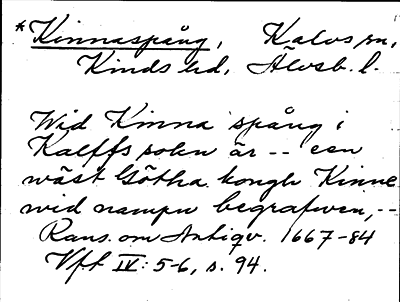 *Kinnaspång, Kalvs sn,
Kinds hd, Älvsb. l.
Wid Kinna spång i
Kalffs soken är -- een
wäst Götha kongh Kinne
wid nampn begrafwen, --
Rans. om Antiqv. 1667-84
Vft IV: 5-6, s. 94.